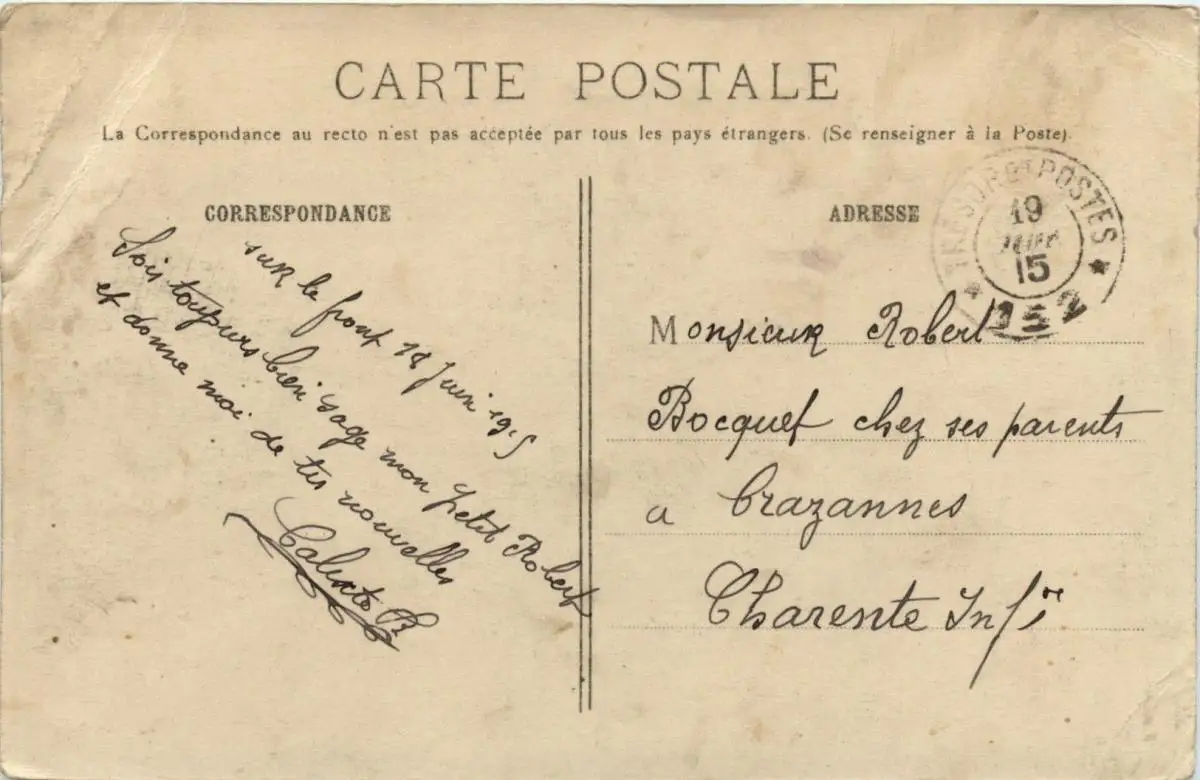 CARTE POSTALE
La Correspondance au recto n'est pas acceptée par tous les pays étrangers. (Se renseigner à la Poste).
CORRESPONDANCE
sur le front 18 Juin 1915
Sois toujours bien sage mon petit Robert
et donne moi de tes nouvelles
ADRESSE
TRESOR ET POSTES
19
15
152
Monsieur Robert
Bocquet chez ses parents
a Crazannes
Charente Infre